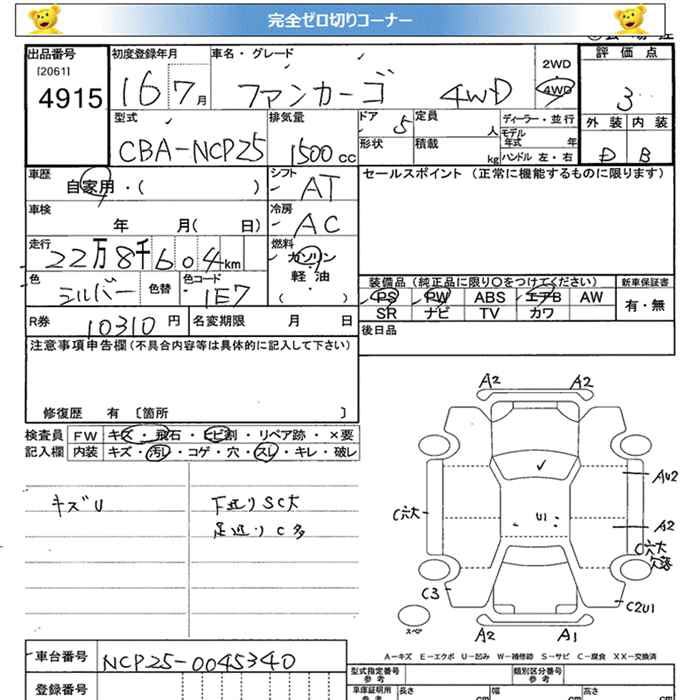 完全ゼロ切りコーナー
出品番号 [2061] 4915
初度登録年月 16 7月
車名・グレード ファンカーゴ 4WD
2WD
4WD
評価点 3
外装 内装
D B
型式 CBA-NCP25
排気量 1500cc
ドア 5
定員 人
形状
積載 kg
ディーラー・並行
モデル年式 年
ハンドル 左・右
車歴 自家用・( )
シフト AT
車検 年 月( 日)
冷房 AC
走行 22万8千604km
燃料 ガソリン
軽・油
( )
色 シルバー 色替
色コード 1E7
R券 10310円
名変期限 月 日
セールスポイント (正常に機能するものに限ります)
装備品(純正品に限り○をつけてください)
PS PW ABS エアB AW
SR ナビ TV カワ
新車保証書
有・無
後日品
注意事項申告欄(不具合内容等は具体的に記入して下さい)
修復歴 有 〔箇所 〕
検査員記入欄
FW キズ・飛石・ヒビ割・リペア跡・×要
内装 キズ・汚レ・コゲ・穴・スレ・キレ・破レ
キズU
下廻りSC大
足廻りC多
A2 A2
AU2
C穴大
U1
A2
C穴大
欠落
C3
C2U1
スペア
A2 A1
A−キズ E−エクボ U−凹み W−補修跡 S−サビ C−腐食 XX−交換済
車台番号 NCP25-0045340
登録番号
型式指定番号 参考
類別区分番号 参考
車庫証明用 参考
長さ cm
幅 cm
高さ cm